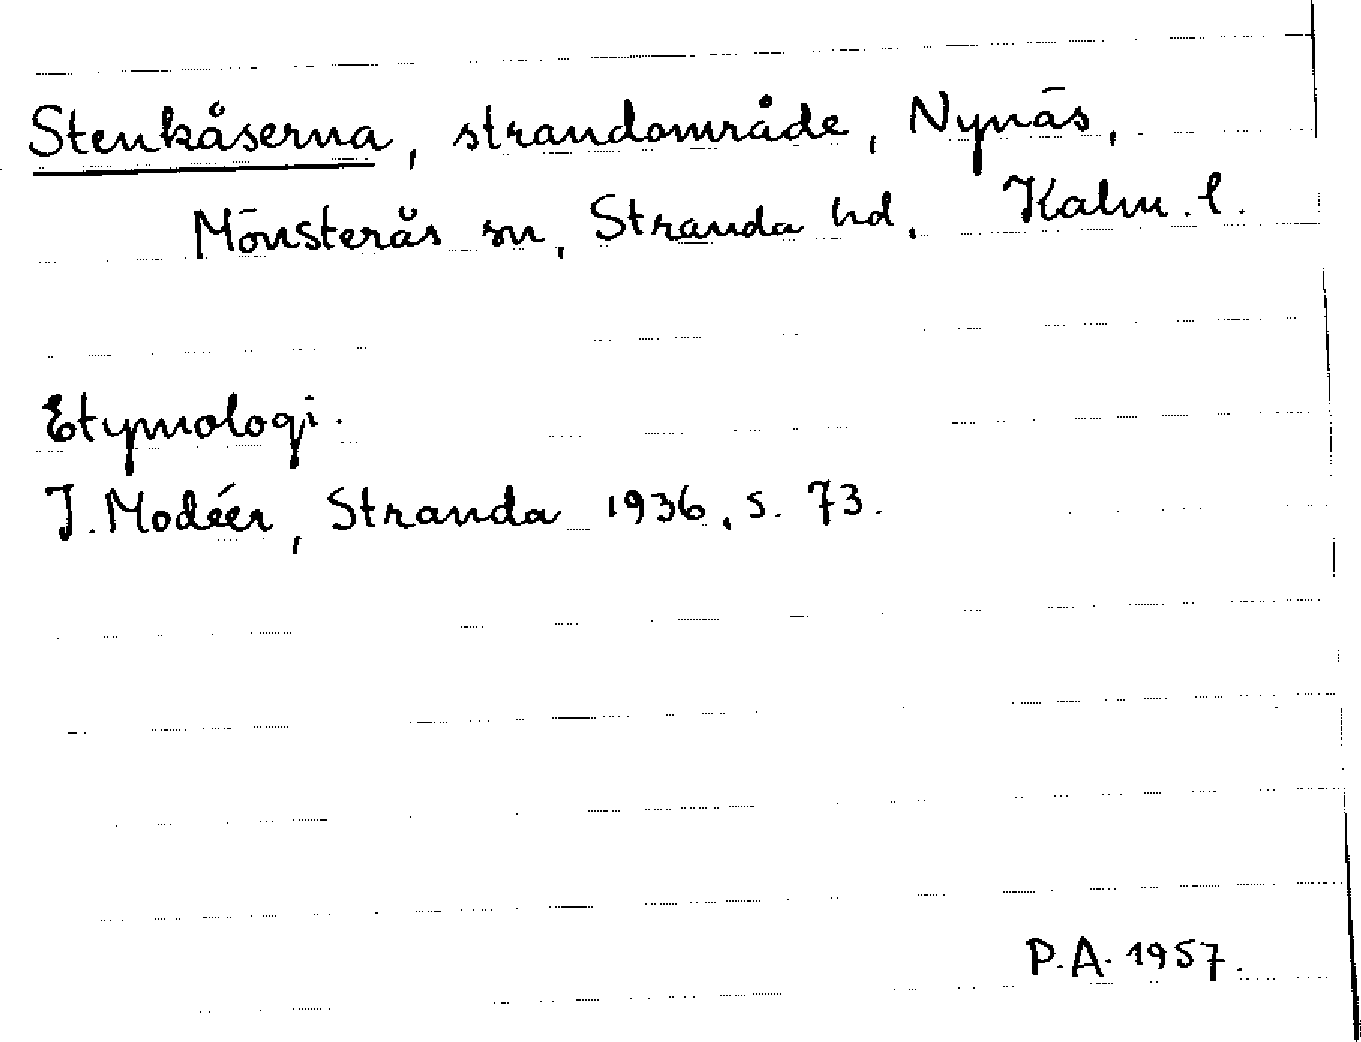 Stenkåserna, strandområde, Nynäs,
Mönsterås sn, Stranda hd, Kalm. l.
Etymologi.
I. Modéer, Stranda 1936, s. 73.
P.A. 1957.